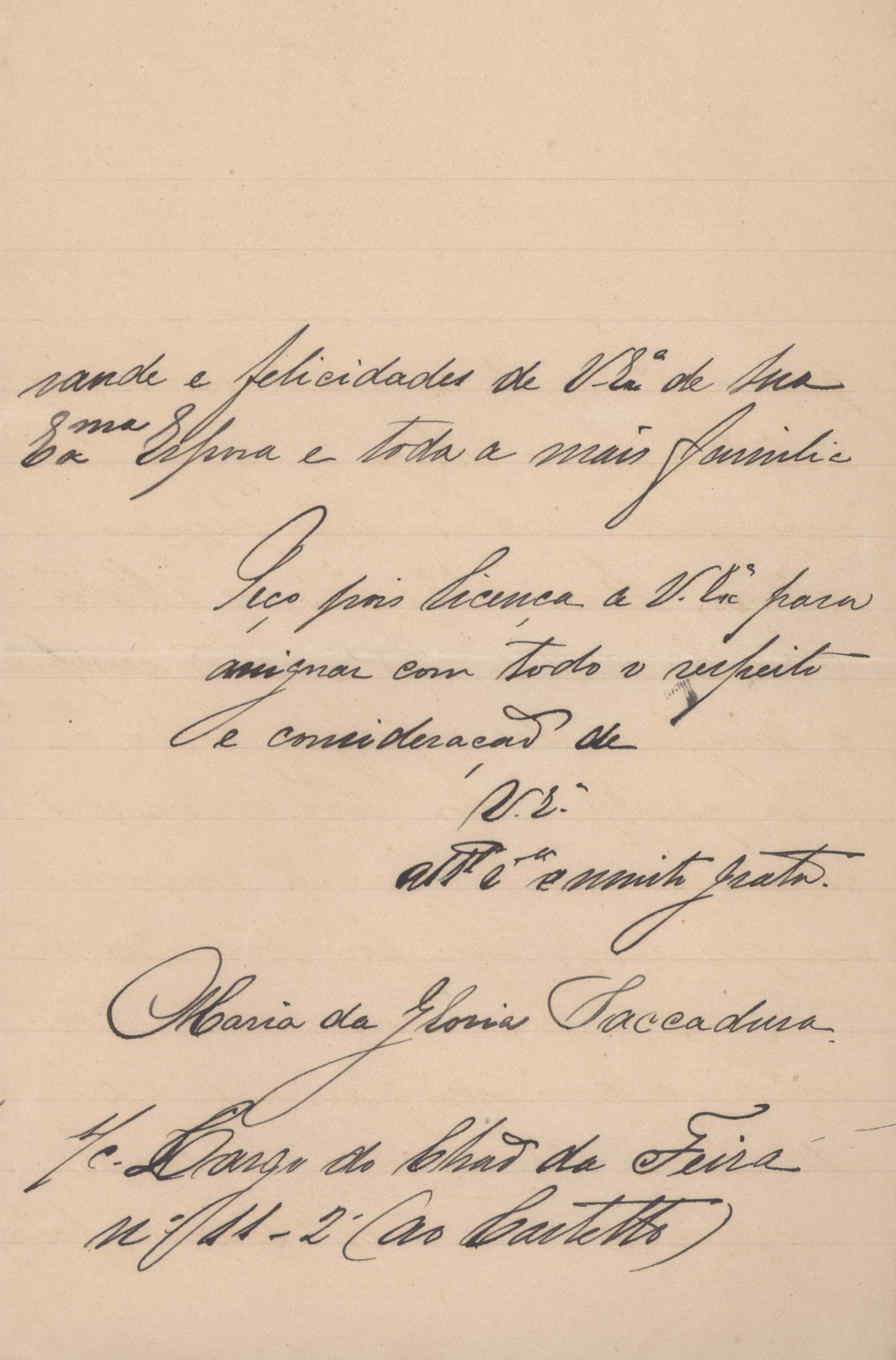 saude e felicidades de V. Exª de sua
Exma Esposa e toda a mais familia
Peço pois licença a V. Exª para
assignar com todo o respeito
e consideração de
V. Eª
attª vª e muito grata.
Maria da Gloria Saccadura
S/c. Largo do Chaõ da Feira
nº 11 - 2º (ao Castello)